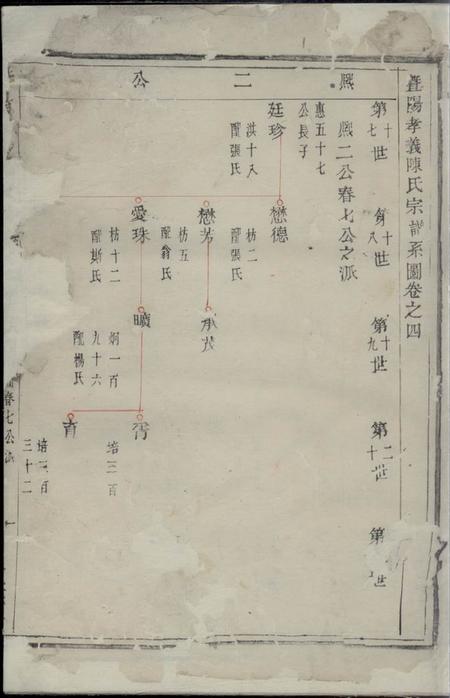 暨陽孝義陳氏宗譜系圖卷之四
熙二公
第十七世
第十八世
第十九世
第二十世
第 世
熙二公春七公之派
惠五十七
公長子
廷珍
洪十八
配張氏
懋德
枋二
配張氏
懋芳
枋五
配翁氏
愛珠
枋十二
配斯氏
承茂
曠
炯一百
九十六
配楊氏
胥
培三百
育
培三百
三十二
春七公派
一